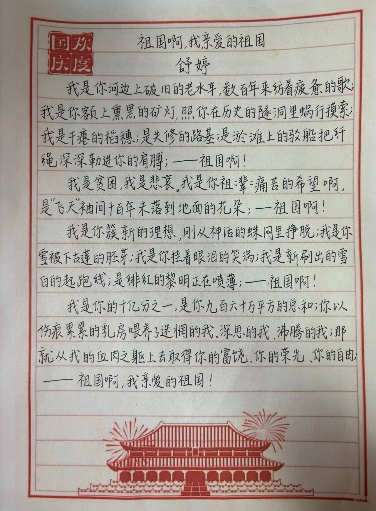 祖国啊,我亲爱的祖国
国欢
庆度
舒婷
我是你河边上破旧的老水车,数百年来纺着疲惫的歌;
我是你额上熏黑的矿灯,照你在历史的隧洞里蜗行摸索;
我是干瘪的稻穗;是失修的路基;是淤滩上的驳船把纤
绳深深勒进你的肩膊;——祖国啊!
我是贫困,我是悲哀。我是你祖辈痛苦的希望啊,
是"飞天"袖间千百年未落到地面的花朵;——祖国啊!
我是你簇新的理想,刚从神话的蛛网里挣脱;我是你
雪被下古莲的胚芽;我是你挂着眼泪的笑涡;我是新刷出的雪
白的起跑线;是绯红的黎明正在喷薄;——祖国啊!
我是你的十亿分之一,是你九百六十万平方的总和;你以
伤痕累累的乳房喂养了迷惘的我、深思的我、沸腾的我;那
就从我的血肉之躯上去取得你的富饶、你的荣光、你的自由;
——祖国啊,我亲爱的祖国!